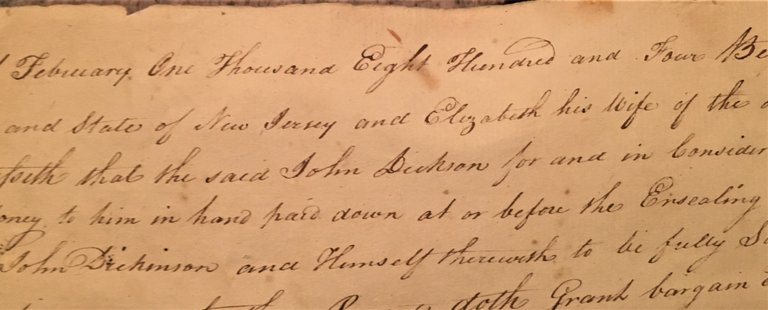 February One Thousand Eight Hundred and Four Be
and State of New Jersey and Elizabeth his Wife of the
seth that the said John Dickson for and in Consider
oney to him in hand paid down at or before the Ensealing
John Dickinson and Himself therewith to be fully Sa
doth Grant bargain